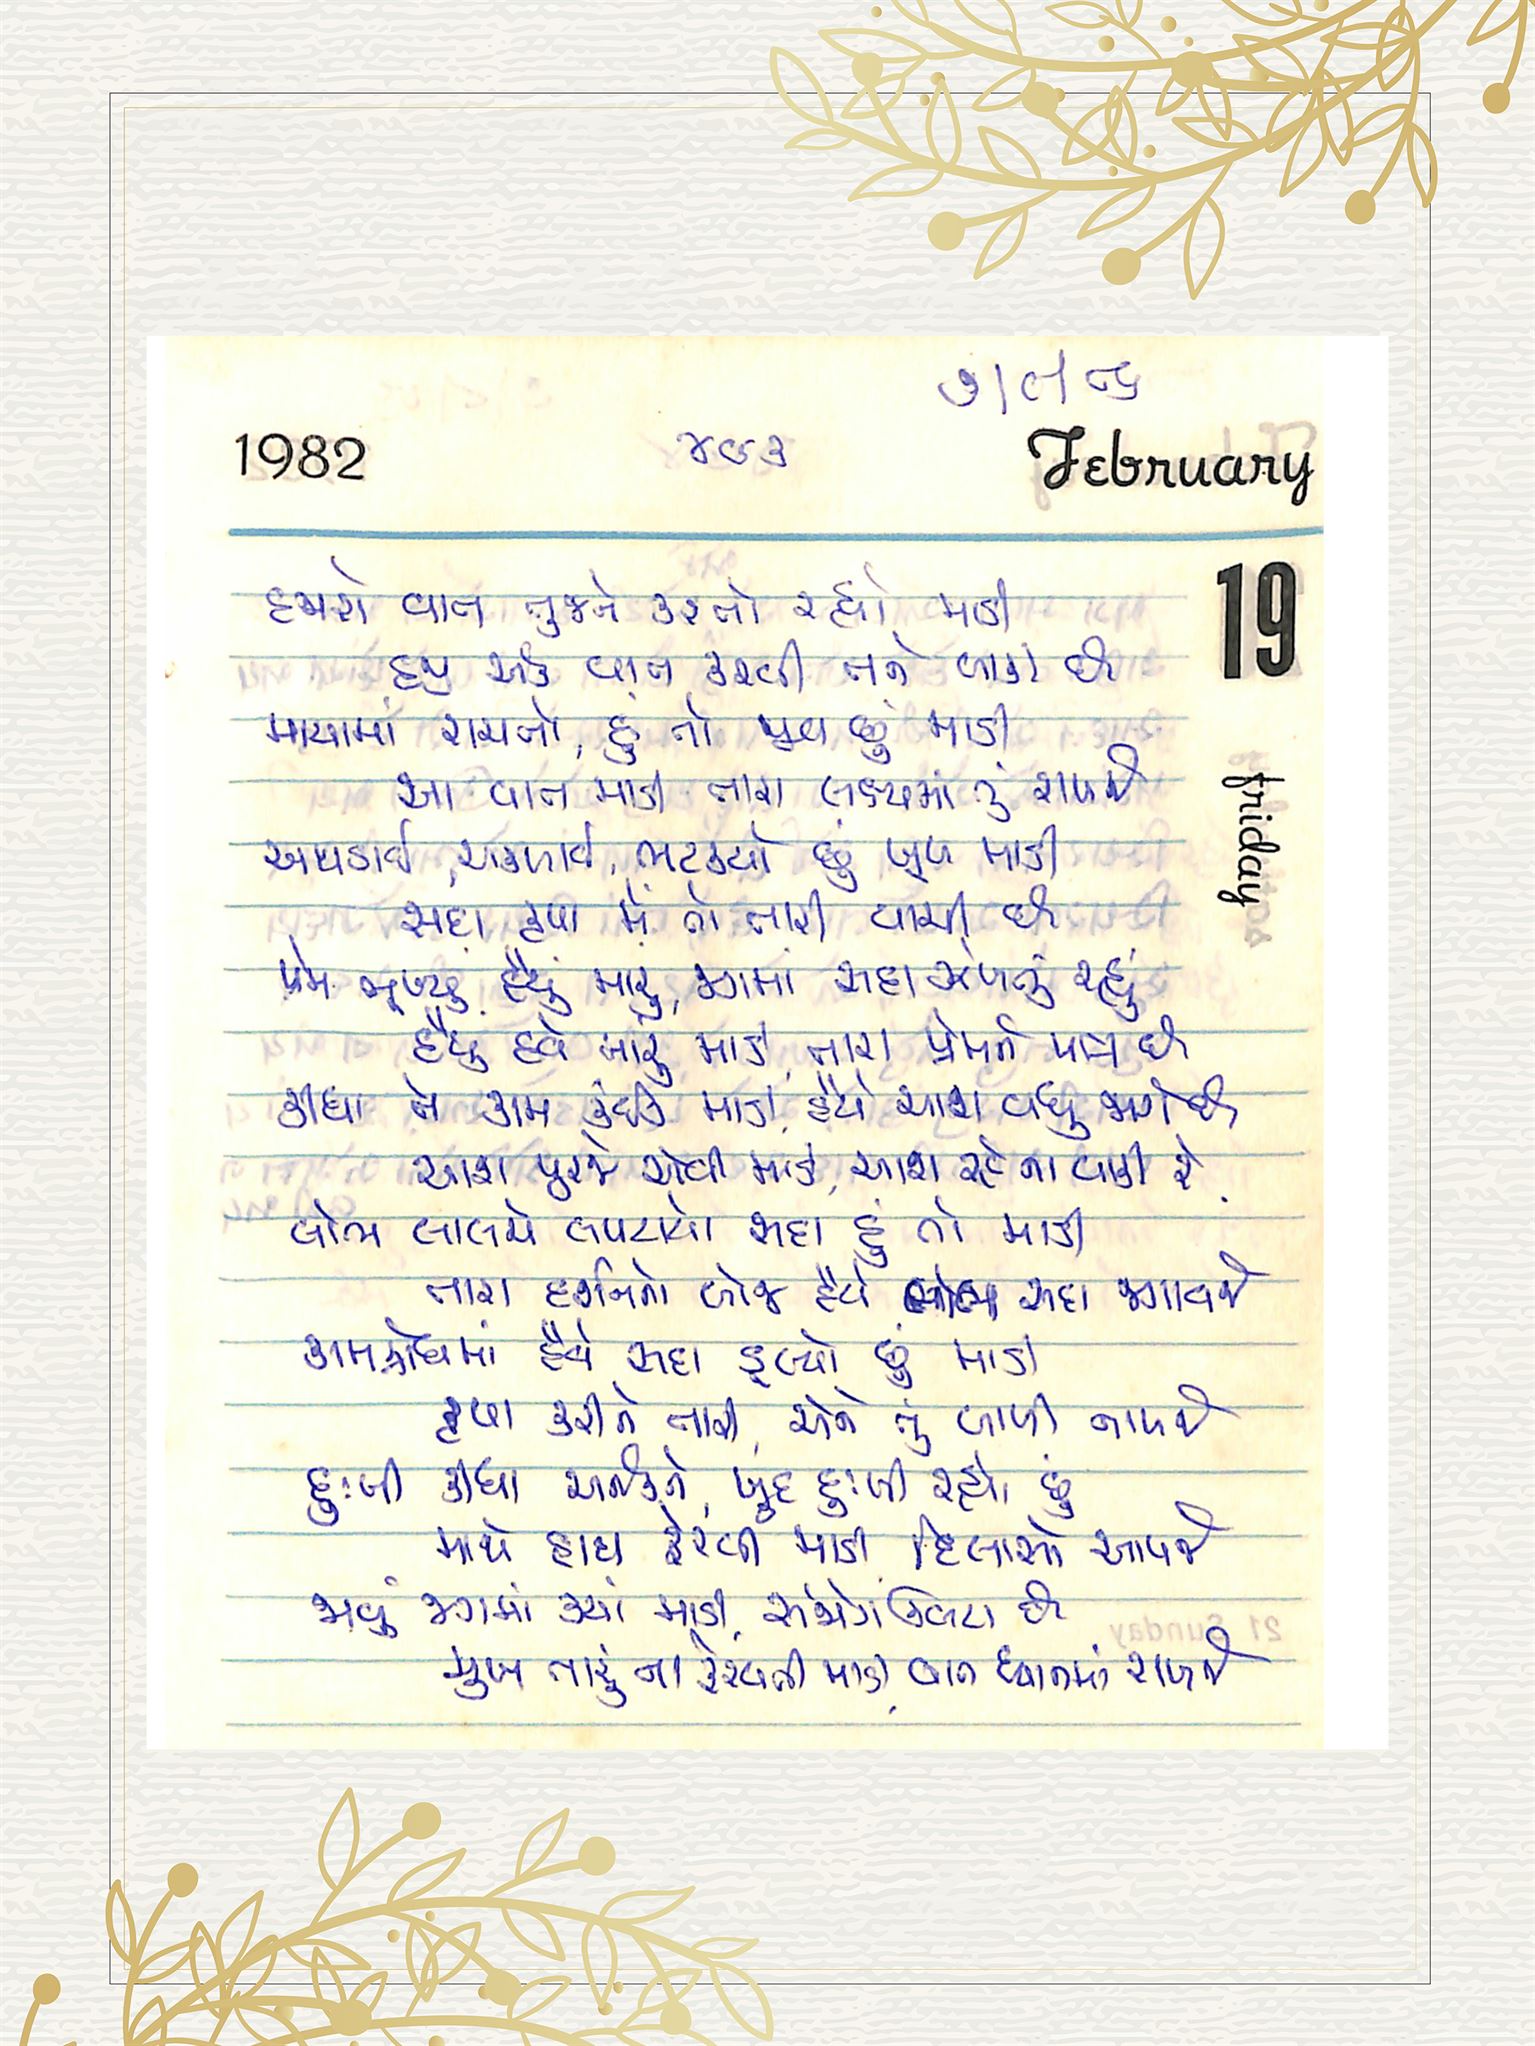 1982
February
19
friday
હજારો વાત તુજને કરતો રહ્યો માડી
હજુ એક વાત કરવી તને બાકી છે
માયામાં રાચતો, હું તો જીવ છું માડી
આ વાત માડી તારા લક્ષ્યમાં તું રાખજે
અથડાઈ, અકળાઈ, ભટક્યો છું ખૂબ માડી
સદા કૃપા મેં તો તારી યાચી છે
પ્રેમ ભૂખ્યું હૈયું મારું, જગમાં સદા ઝંખતું રહ્યું
હૈયું હવે મારું માડી, તારા પ્રેમને પાત્ર છે
કીધા ને કામ કંઈક માડી, હૈયે આશ વધુ જાગે છે
આશ પુરજે એવી માડી, આશ રહે ના બાકી રે
લોભ લાલચે લપટાયો સદા હું તો માડી
તારા દર્શનનો લોભ હૈયે સદા જગાવજે
કામક્રોધમાં હૈયે સદા ડૂબ્યો છું માડી
કૃપા કરીને તારી, એને તું બાળી નાખજે
દુઃખી કીધા અનેકને, ખુદ દુઃખી રહ્યો છું
માથે હાથ ફેરવી માડી, દિલાસો આપજે
જાવું જગમાં ક્યાં માડી, સંજોગ વિકટ છે
મુખ તારું ના ફેરવતી માડી, વાત ધ્યાનમાં રાખજે